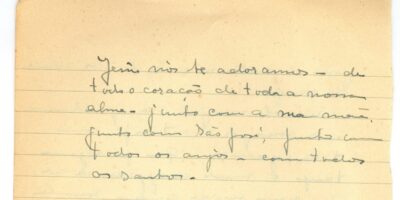 Jesus nós te adoramos - de
todo o coração de toda a nossa
alma - junto com a sua mãe,
junto com São José, junto com
todos os anjos - com todos
os santos -